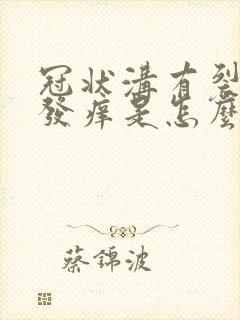 冠状溝有裂
發痒是怎麼
蔡錦波